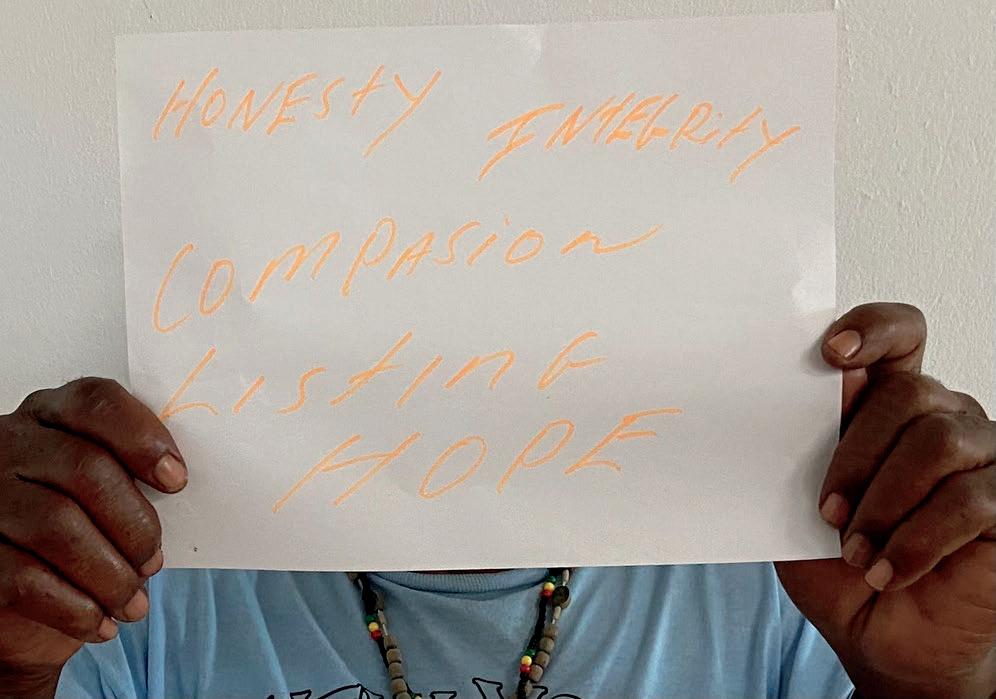 HONESTY INTEGRITY
COMPASION
LISTING
HOPE